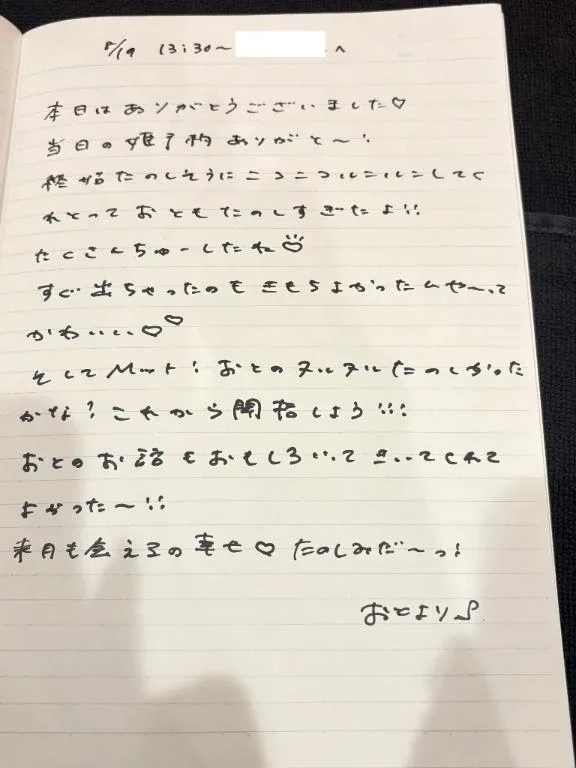 8/19 13:30〜 へ
本日はありがとうございました♡
当日の姫予約ありがと〜!
終始たのしそうにニコニコルンルンしてく
れとって おともたのしすぎたよ!!
たくさんちゅーしたね♡
すぐ出ちゃったのもきもちよかったんや〜って
かわいい♡♡
そしてMット! おとのヌルヌルたのしかった
かな? これから開拓しよう!!!
おとのお話もおもしろいってきいてくれて
よかった〜!!
来月も会えるの幸せ♡ たのしみだ〜っ!
おとより♪